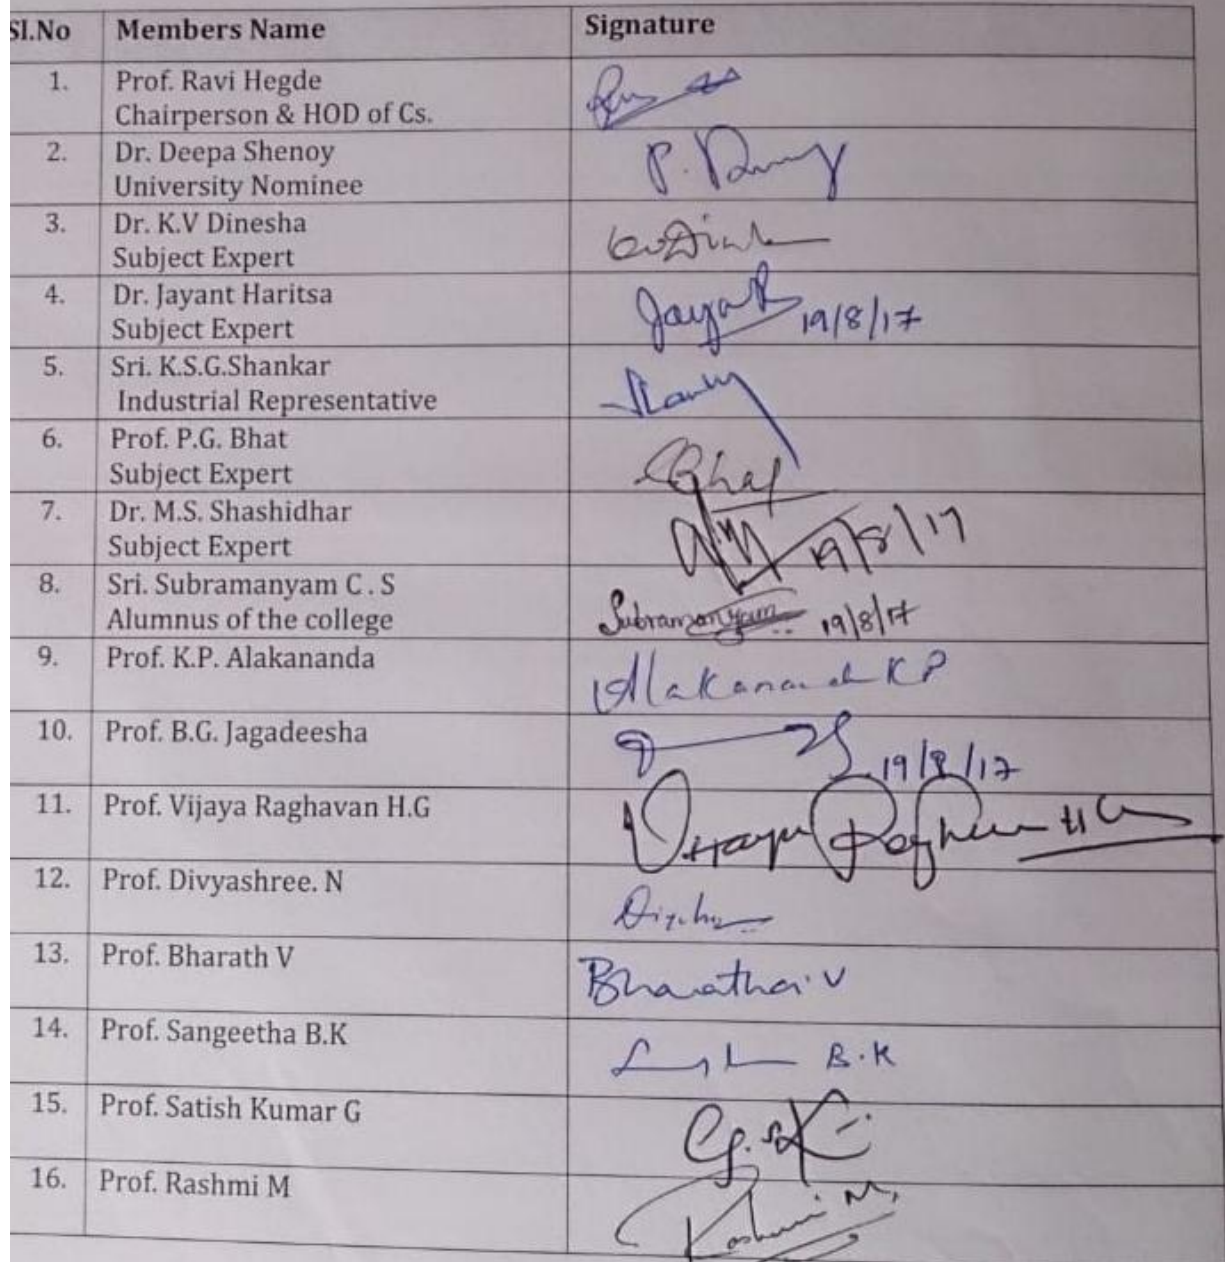 Sl.No Members Name Signature
1. Prof. Ravi Hegde
Chairperson & HOD of Cs.
2. Dr. Deepa Shenoy
University Nominee
3. Dr. K.V Dinesha
Subject Expert
4. Dr. Jayant Haritsa
19/8/17
Subject Expert
5. Sri. K.S.G.Shankar
Industrial Representative
6. Prof. P.G. Bhat
Subject Expert
7. Dr. M.S. Shashidhar
19/8/17
Subject Expert
8. Sri. Subramanyam C . S
Alumnus of the college Subramanyam 19/8/17
9. Prof. K.P. Alakananda
10. Prof. B.G. Jagadeesha
19/8/17
11. Prof. Vijaya Raghavan H.G
12. Prof. Divyashree. N
13. Prof. Bharath V
14. Prof. Sangeetha B.K
B.K
15. Prof. Satish Kumar G
16. Prof. Rashmi M
Rashmi M.